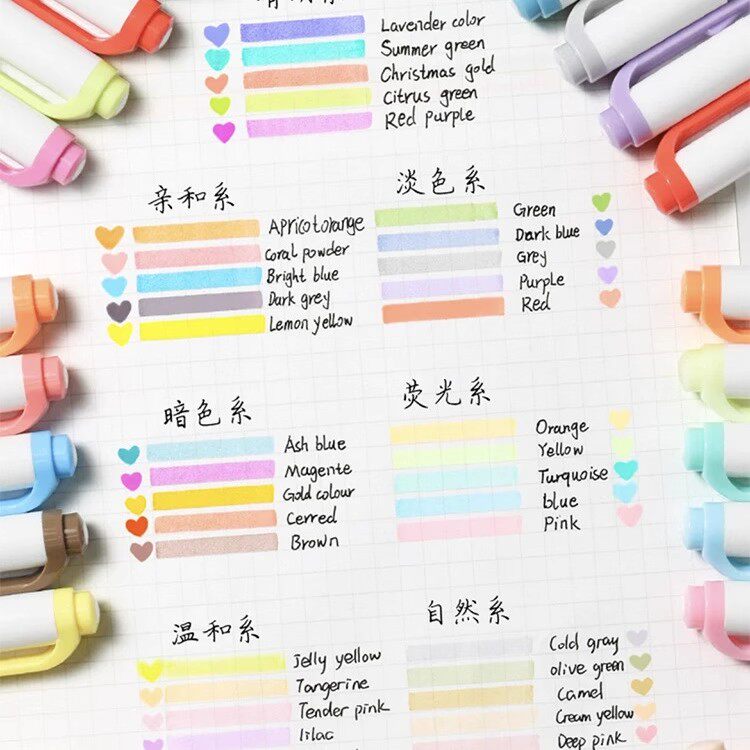 Lavender color
Summer green
Christmas gold
Citrus green
Red purple
亲和系
Apricotorange
Coral powder
Bright blue
Dark grey
Lemon yellow
淡色系
Green
Dark blue
Grey
Purple
Red
暗色系
Ash blue
Magente
Gold colour
Cerred
Brown
荧光系
Orange
Yellow
Turquoise
blue
Pink
温和系
Jelly yellow
Tangerine
Tender pink
lilac
自然系
Cold gray
olive green
Camel
Cream yellow
Deep pink